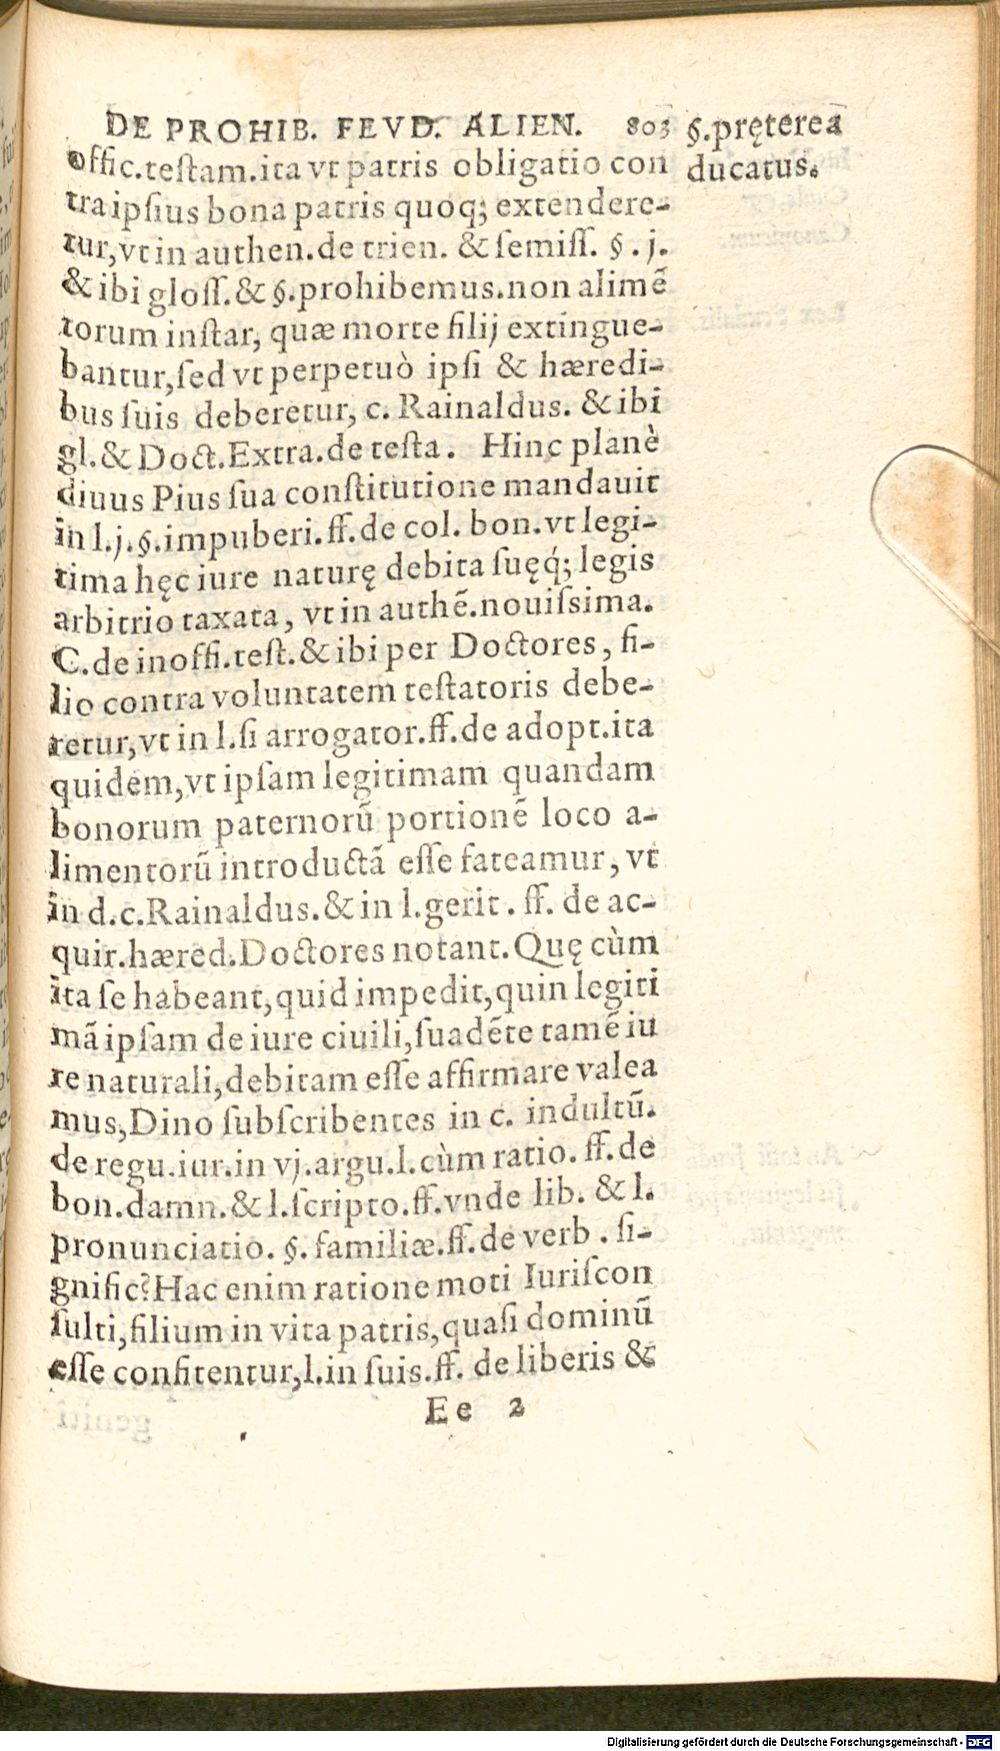 DE PROHIB. FEVD. ALIEN. 803 §.pręterea
ducatus.
offic.testam.ita vt patris obligatio con
tra ipsius bona patris quoq; extendere-
tur,vt in authen.de trien. & semiss. §. j.
& ibi gloss.& §.prohibemus.non alimẽ
torum instar, quæ morte filij extingue-
bantur,sed vt perpetuò ipsi & hæredi-
bus suis deberetur, c. Rainaldus. & ibi
gl.& Doct.Extra.de testa. Hinc planè
diuus Pius sua constitutione mandauit
in l.j.§.impuberi.ff.de col. bon.vt legi-
tima hęc iure naturę debita suęq́; legis
arbitrio taxata, vt in authẽ.nouissima.
C.de inoffi.test.& ibi per Doctores, fi-
lio contra voluntatem testatoris debe-
retur,vt in l.si arrogator.ff.de adopt.ita
quidem,vt ipsam legitimam quandam
bonorum paternorũ portionẽ loco a-
limentorũ introductã esse fateamur, vt
in d.c.Rainaldus.& in l.gerit. ff. de ac-
quir.hæred.Doctores notant.Quę cùm
ita se habeant,quid impedit,quin legiti
mã ipsam de iure ciuili,suadẽte tamẽ iu
re naturali,debitam esse affirmare valea
mus,Dino subscribentes in c. indultũ.
de regu.iur.in vj.argu.l.cùm ratio. ff.de
bon.damn.& l.scripto.ff.vnde lib. & l.
pronunciatio. §. familiæ.ff.de verb. si-
gnific? Hac enim ratione moti Iuriscon
sulti,filium in vita patris,quasi dominũ
esse confitentur,l.in suis.ff. de liberis &
Ee 2
Digitalisierung gefördert durch die Deutsche Forschungsgemeinschaft - DFG